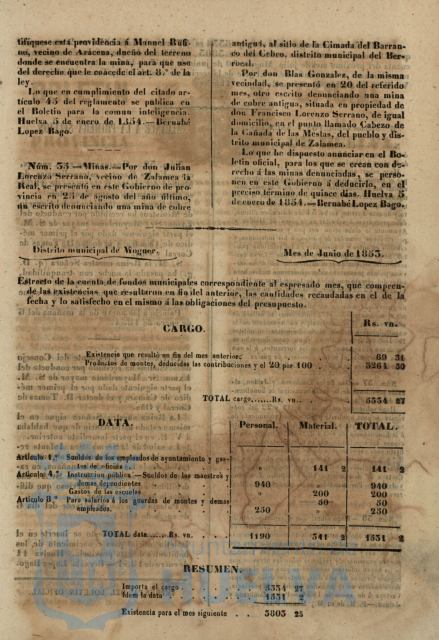 tifíquese esta providencia á Manuel Rufi-
no, vecino de Aracena, dueño del terreno
donde se encuentra la mina, para que use
del derecho que le concede el art. 8.º de la
ley.
Lo que en cumplimiento del citado ar-
tículo 45 del reglamento se publica en
el Boletin para la comun inteligencia.
Huelva 5 de enero de 1854.—Bernabé
Lopez Bago.
Núm. 35—Minas.—Por don Julian
Lorenzo Serrano, vecino de Zalamea la
Real, se presentó en este Gobierno de pro-
vincia en 25 de agosto del año último,
un escrito denunciando una mina de cobre
antigua, al sitio de la Cimada del Barran-
co del Cebro, distrito municipal del Ber-
rocal.
Por don Blas Gonzalez, de la misma
vecindad, se presentó en 20 del referido
mes, otro escrito denunciando una mina
de cobre antigua, situada en propiedad de
don Francisco Lorenzo Serrano, de igual
domicilio, en el punto llamado Cabezo de
la Cañada de las Mestas, del pueblo y dis-
trito municipal de Zalamea.
Lo que he dispuesto anunciar en el Bo-
letin oficial, para los que se crean con de-
recho á las minas denunciadas, se perso-
nen en este Gobierno á deducirlo, en el
preciso término de quince dias. Huelva 5
de enero de 1854.—Bernabé Lopez Bago.
Distrito municipal de Moguer.
Mes de Junio de 1853.
Estracto de la cuenta de fondos municipales correspondiente al espresado mes, que compren-
de las existencias que resultaron en fin del anterior, las cantidades recaudadas en el de la
fecha y lo satisfecho en el mismo á las obligaciones del presupuesto.
CARGO.
Rs. vn.
Existencia que resultó en fin del mes anterior. 69 31
Productos de montes, deducidas las contribuciones y el 20 por 100 . 5264 30
TOTAL cargo.....Rs. vn. 5334 27
DATA.
Personal. Material. TOTAL.
Artículo 1.º Sueldos de los empleados de ayuntamiento y gas-
tos de oficina 141 2 141 2
Artículo 4.º Instruccion pública.—Sueldos de los maestros y
demas dependientes 940 940
Gastos de las escuelas 200 200
Artículo 8.º Para salarios á los guardas de montes y demas
empleados. 250 250
TOTAL data.....Rs. vn. 1190 341 2 1531 2
RESUMEN.
Importa el cargo 5334 27
Idem la data 1531 2
Existencia para el mes siguiente 3803 25
HUELVA